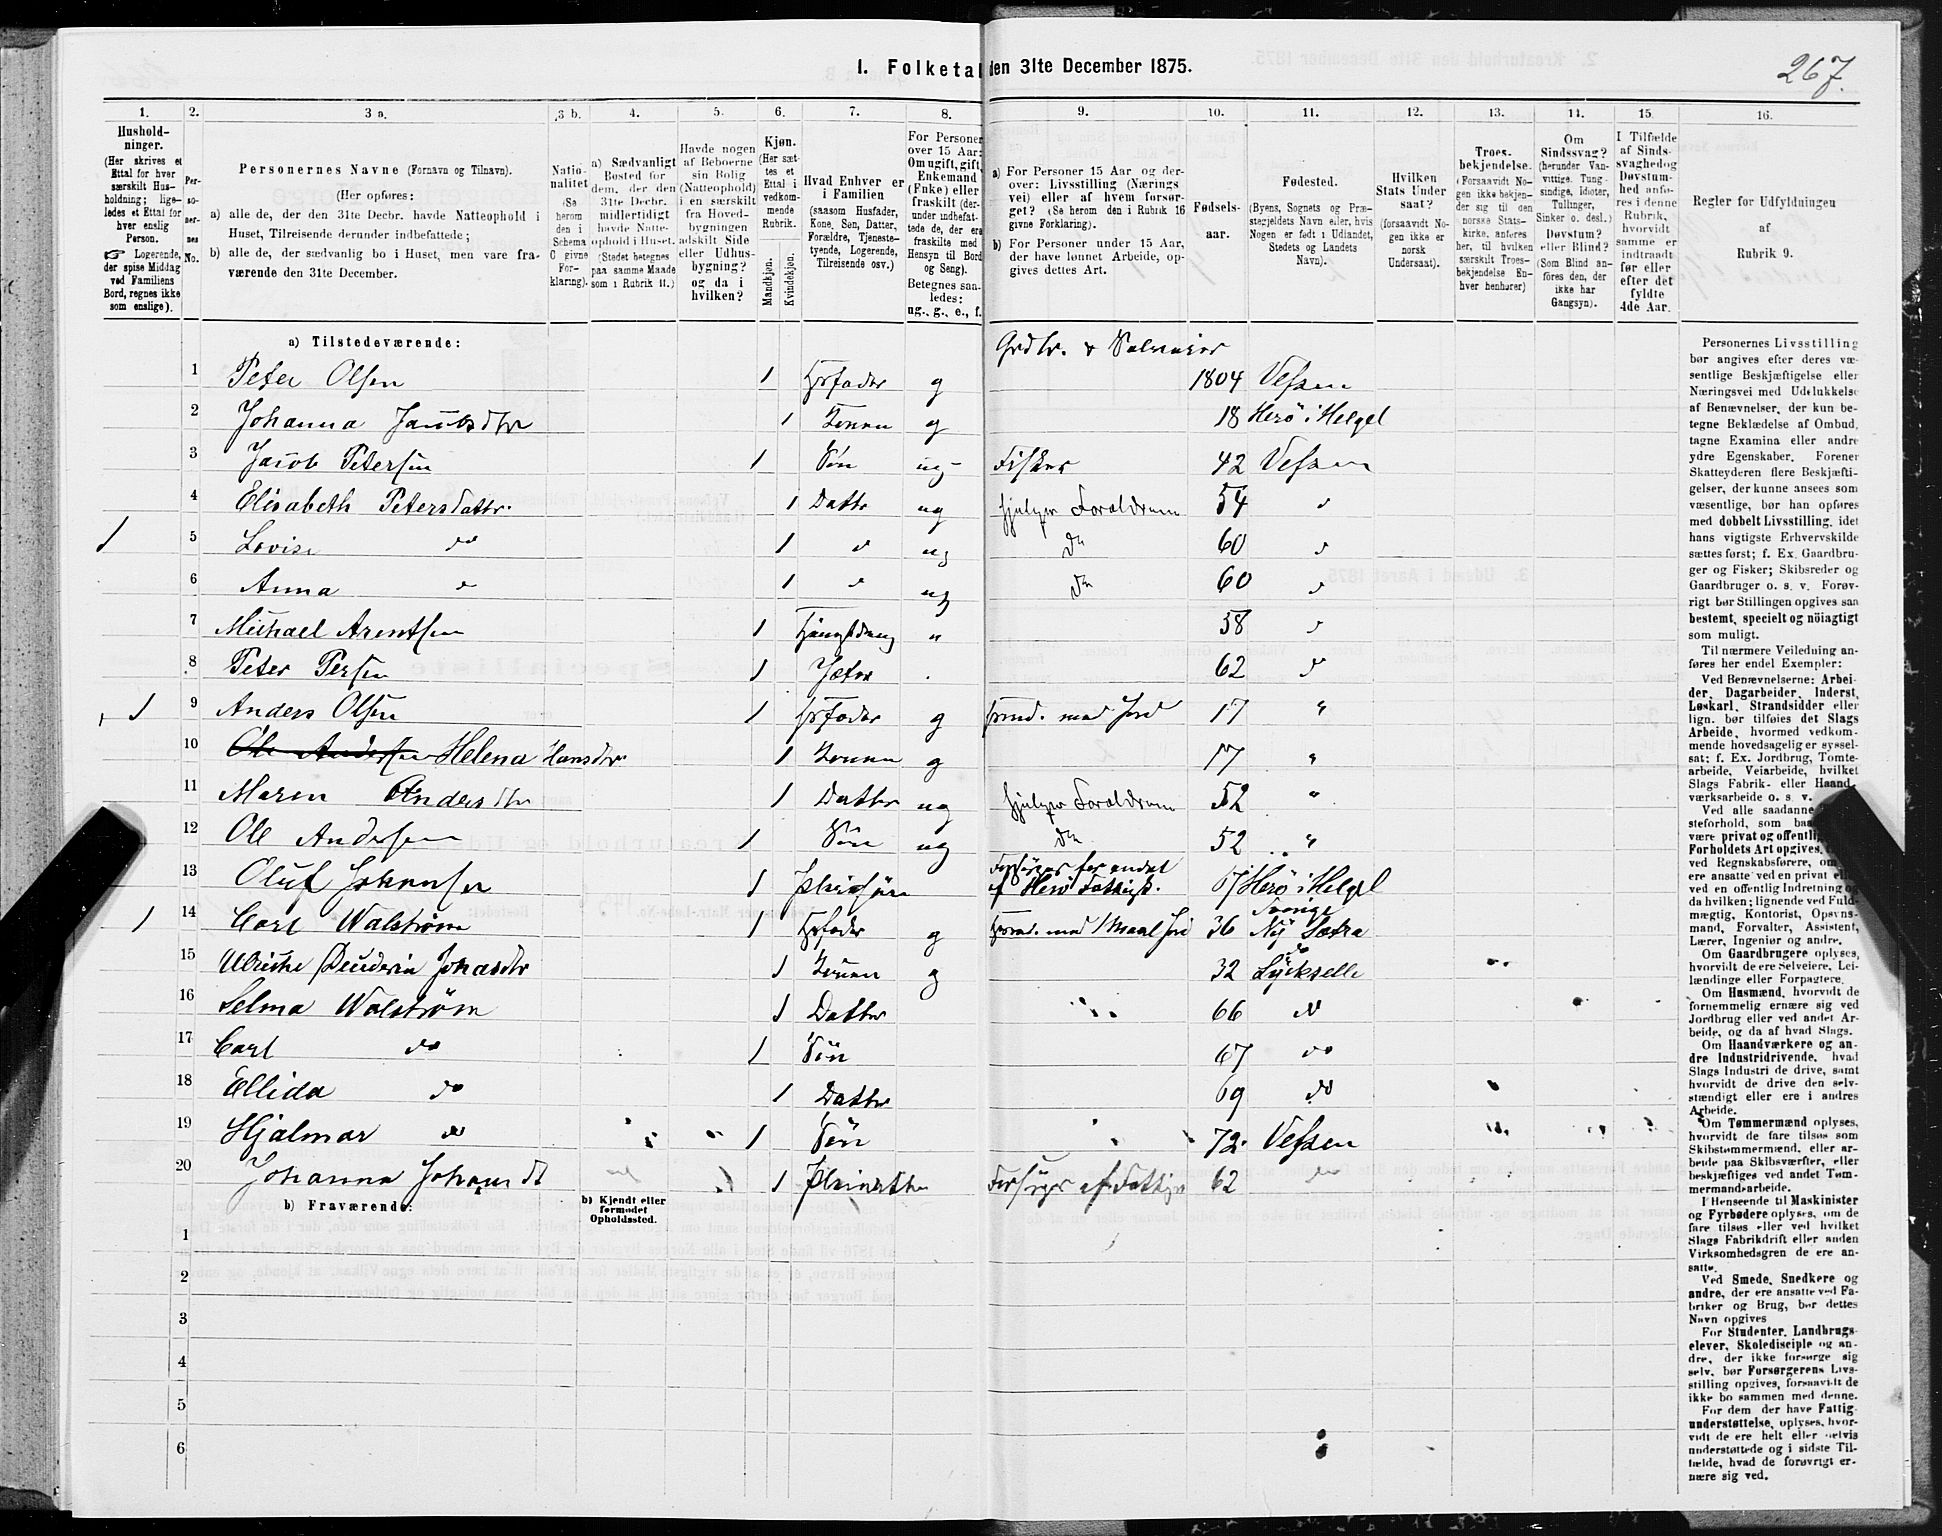 267.
1. Folketal den 31te December 1875.
1. 2. 3 a. 3 b. 4. 5. 6. 7. 8. 9. 10. 11. 12. 13. 14. 15. 16.
Hushold-
ninger.
(Her skrives et
Ettal for hver
særskilt Hus-
holdning; lige-
ledes et Ettal for
hver enslig
Person.
Logerende,
der spise Middag
ved Familiens
Bord, regnes ikke
som enslige).
Per-
so-
ner-
nes
No.
Personernes Navne (Fornavn og Tilnavn).
(Her opføres:
a) alle de, der den 31te Decbr. havde Natteophold i
Huset, Tilreisende derunder indbefattede;
b) alle de, der sædvanlig bo i Huset, men vare fra-
værende den 31te December.
Natio-
nalitet
(Se
herom
den i
Schema
C givne
For-
klaring).
a) Sædvanligt
Bosted for
dem, der den
31te Decbr.
midlertidigt
havde Natte-
ophold i Huset.
(Stedet betegnes
paa samme Maade
som i Rubrik 11.)
Havde nogen
af Beboerne
sin Bolig
(Natteophold)
i en særskilt
fra Hoved-
bygningen
adskilt Side
eller Udhus-
bygning?
og da i
hvilken?
Kjøn.
(Her sæt-
tes et
Ettal i
vedkom-
mende
Rubrik.
Mandkjøn.
Kvindekjøn.
Hvad Enhver er
i Familien
(saasom Husfader,
Kone, Søn, Datter,
Forældre, Tjeneste-
tyende, Logerende,
Tilreisende osv.)
For Personer
over 15 Aar:
Om ugift, gift,
Enkemand
(Enke) eller
fraskilt (der-
under indbefat-
tede de, der ere
fraskilte med
Hensyn til Bord
og Seng).
Betegnes saa-
ledes:
ug., g., e., f.
a) For Personer 15 Aar og der-
over: Livsstilling (Nærings
vei) eller af hvem forsør-
get? (Se herom den i Rubrik 16
givne Forklaring).
b) For Personer under 15 Aar,
der have lønnet Arbeide, op-
gives dettes Art.
Fødsels-
aar.
Fødested.
(Byens, Sognets og Præ-
stegjeldets Navn eller, hvis
Nogen er født i Udlandet,
Stedets og Landets
Navn).
Hvilken
Stats Under
saat?
(forsaavidt No-
gen ikke er
norsk
Undersaat).
Troes-
bekjendelse.
(Forsaavidt No-
gen ikke bekjen-
der sig til den
norske Stats-
kirke, anføres
her, til hvilken
særskilt Troes-
bekjendelse En-
hver henhører)
Om
Sindssvag?
(herunder Van-
vittige, Tung-
sindige, Idioter,
Tullinger,
Sinker o. desl.)
Døvstum?
eller Blind?
(Som Blind an-
føres den, der
ikke har
Gangsyn).
I Tilfælde
af Sinds-
svaghed og
Døvstum-
hed anfø-
res i denne
Rubrik,
hvorvidt
samme er
indtraadt
før eller
efter det
fyldte
4de Aar.
Regler for Udfyldningen
af
Rubrik 9.
a) Tilstedeværende:
Grdbr. & Selveier
1 Peter Olsen 1 Hrfader g 1804 Vefsen
2 Johanna Jacobsdtr 1 Konen g 18 Herö i Helgel
3 Jacob Petersen 1 Søn ug Fisker 42 Vefsen
4 Elisabeth Petersdattr. 1 Dattr ug hjelper Foraldrene 54 d
1 5 Lovise do 1 d ug do 60 d
6 Anna d 1 d ug do 60 d
7 Michael Arentsen 1 " 58 d
8 Peter Persen 1 Jæter 62 d
1 9 Anders Olsen 1 Hrfader g Husmd. med Jord 17 "
10 Ole Andersen Helena Hansdtr 1 Konen g 17 "
11 Maren Andersdtr 1 Datter ug hjelper Foraldrene 52 "
12 Ole Andersen 1 Søn ug do 52 "
13 Oluf Johansen 1 Forsörges for endel
af Herö Fattigk. 67 Herö i Helgel
1 14 Carl Walstrøm 1 Hrfader g Husmd. med Jord 36 Sverige
Ny Sætra
15 Ulricke Johansdtr 1 Konen g 32 do
Lyckselle
16 Selma Walstrøm 1 Datter 66 do
17 Carl do 1 Søn 67 do
18 Ellida do 1 Datter 69 do
19 Hjalmar do 1 Søn 72 Vefsen
20 Johanna 1 Pleiedatter Forsörges af 62 do
b) Fraværende:
b) Kjendt eller
formodet
Opholdssted.
1
2
3
4
5
6
Personernes Livsstilling
bør angives efter deres væ-
sentlige Beskjæftigelse eller
Næringsvei med Udelukkelse
af Benævnelser, der kun be-
tegne Beklædelse af Ombud,
tagne Examina eller andre
ydre Egenskaber. Forener
Skatteyderen flere Beskjæfti-
gelser, der kunne ansees som
væsentlige, bør han opføres
med dobbelt Livsstilling, idet
hans vigtigste Erhvervskilde
sættes først; f. Ex. Gaardbru-
ger og Fisker; Skibsreder og
Gaardbruger o. s. v. Forøv-
rigt bør Stillingen opgives saa
bestemt, specielt og nöiagtigt
som muligt.
Til nærmere Veiledning an-
føres her endel Exempler:
Ved Benævnelserne: Arbei-
der, Dagarbeider, Inderst,
Løskarl, Strandsidder eller
lign. bør tilføies det Slags
Arbeide, hvormed vedkom-
mende hovedsagelig er syssel-
sat; f. Ex. Jordbrug, Tomte-
arbeide, Veiarbeide, hvilket
Slags Fabrik- eller Haand-
værksarbeide o. s. v.
Ved alle saadanne
steforhold, som
være privat og offentlig
Forholdets Art opgives,
ved Regnskabsførere, om
ere ansatte ved en privat eller
ved en offentlig Indretning og
da hvilken; lignende ved Fuld-
mægtig, Kontorist, Opsyns-
mand, Forvalter, Assistent,
Lærer, Ingeniør og andre.
Om Gaardbrugere oplyses,
hvorvidt de ere Selveiere, Lei-
lændinge eller Forpagtere.
Om Husmænd, hvorvidt de
fornemmelig ernære sig ved
Jordbrug eller ved andet Ar-
beide, og da af hvad Slags.
Om Haandværkere og an-
dre Industridrivende, hvad
Slags Industri de drive, samt
hvorvidt de drive den selv-
stændigt eller ere i andres
Arbeide.
Om Tømmermænd oplyses,
hvorvidt de fare tilsøs som
Skibstømmermænd, eller ar-
beide paa Skibsværfter, eller
beskjæftiges ved andet Tøm-
mermandsarbeide.
I Henseende til Maskinister
og Fyrbødere oplyses, om de
fare tilsøs eller ved hvilket
Slags Fabrikdrift eller anden
Virksomhedsgren de ere an-
satte.
Ved Smede, Snedkere og
andre, der ere ansatte ved Fa-
briker og Brug, bør dettes
Navn opgives
For Studenter, Landbrugs-
elever, Skoledisciple og an-
dre, der ikke forsørge sig
selv, bør Forsørgerens Livs-
stilling opgives, forsaavidt de
ikke bo sammen med denne.
For dem der have Fattig
understøttelse, oplyses, hvor-
vidt de ere helt eller delvis
understøttede og i sidste Til-
fælde, hvad de forøvrigt er-
nære sig ved.